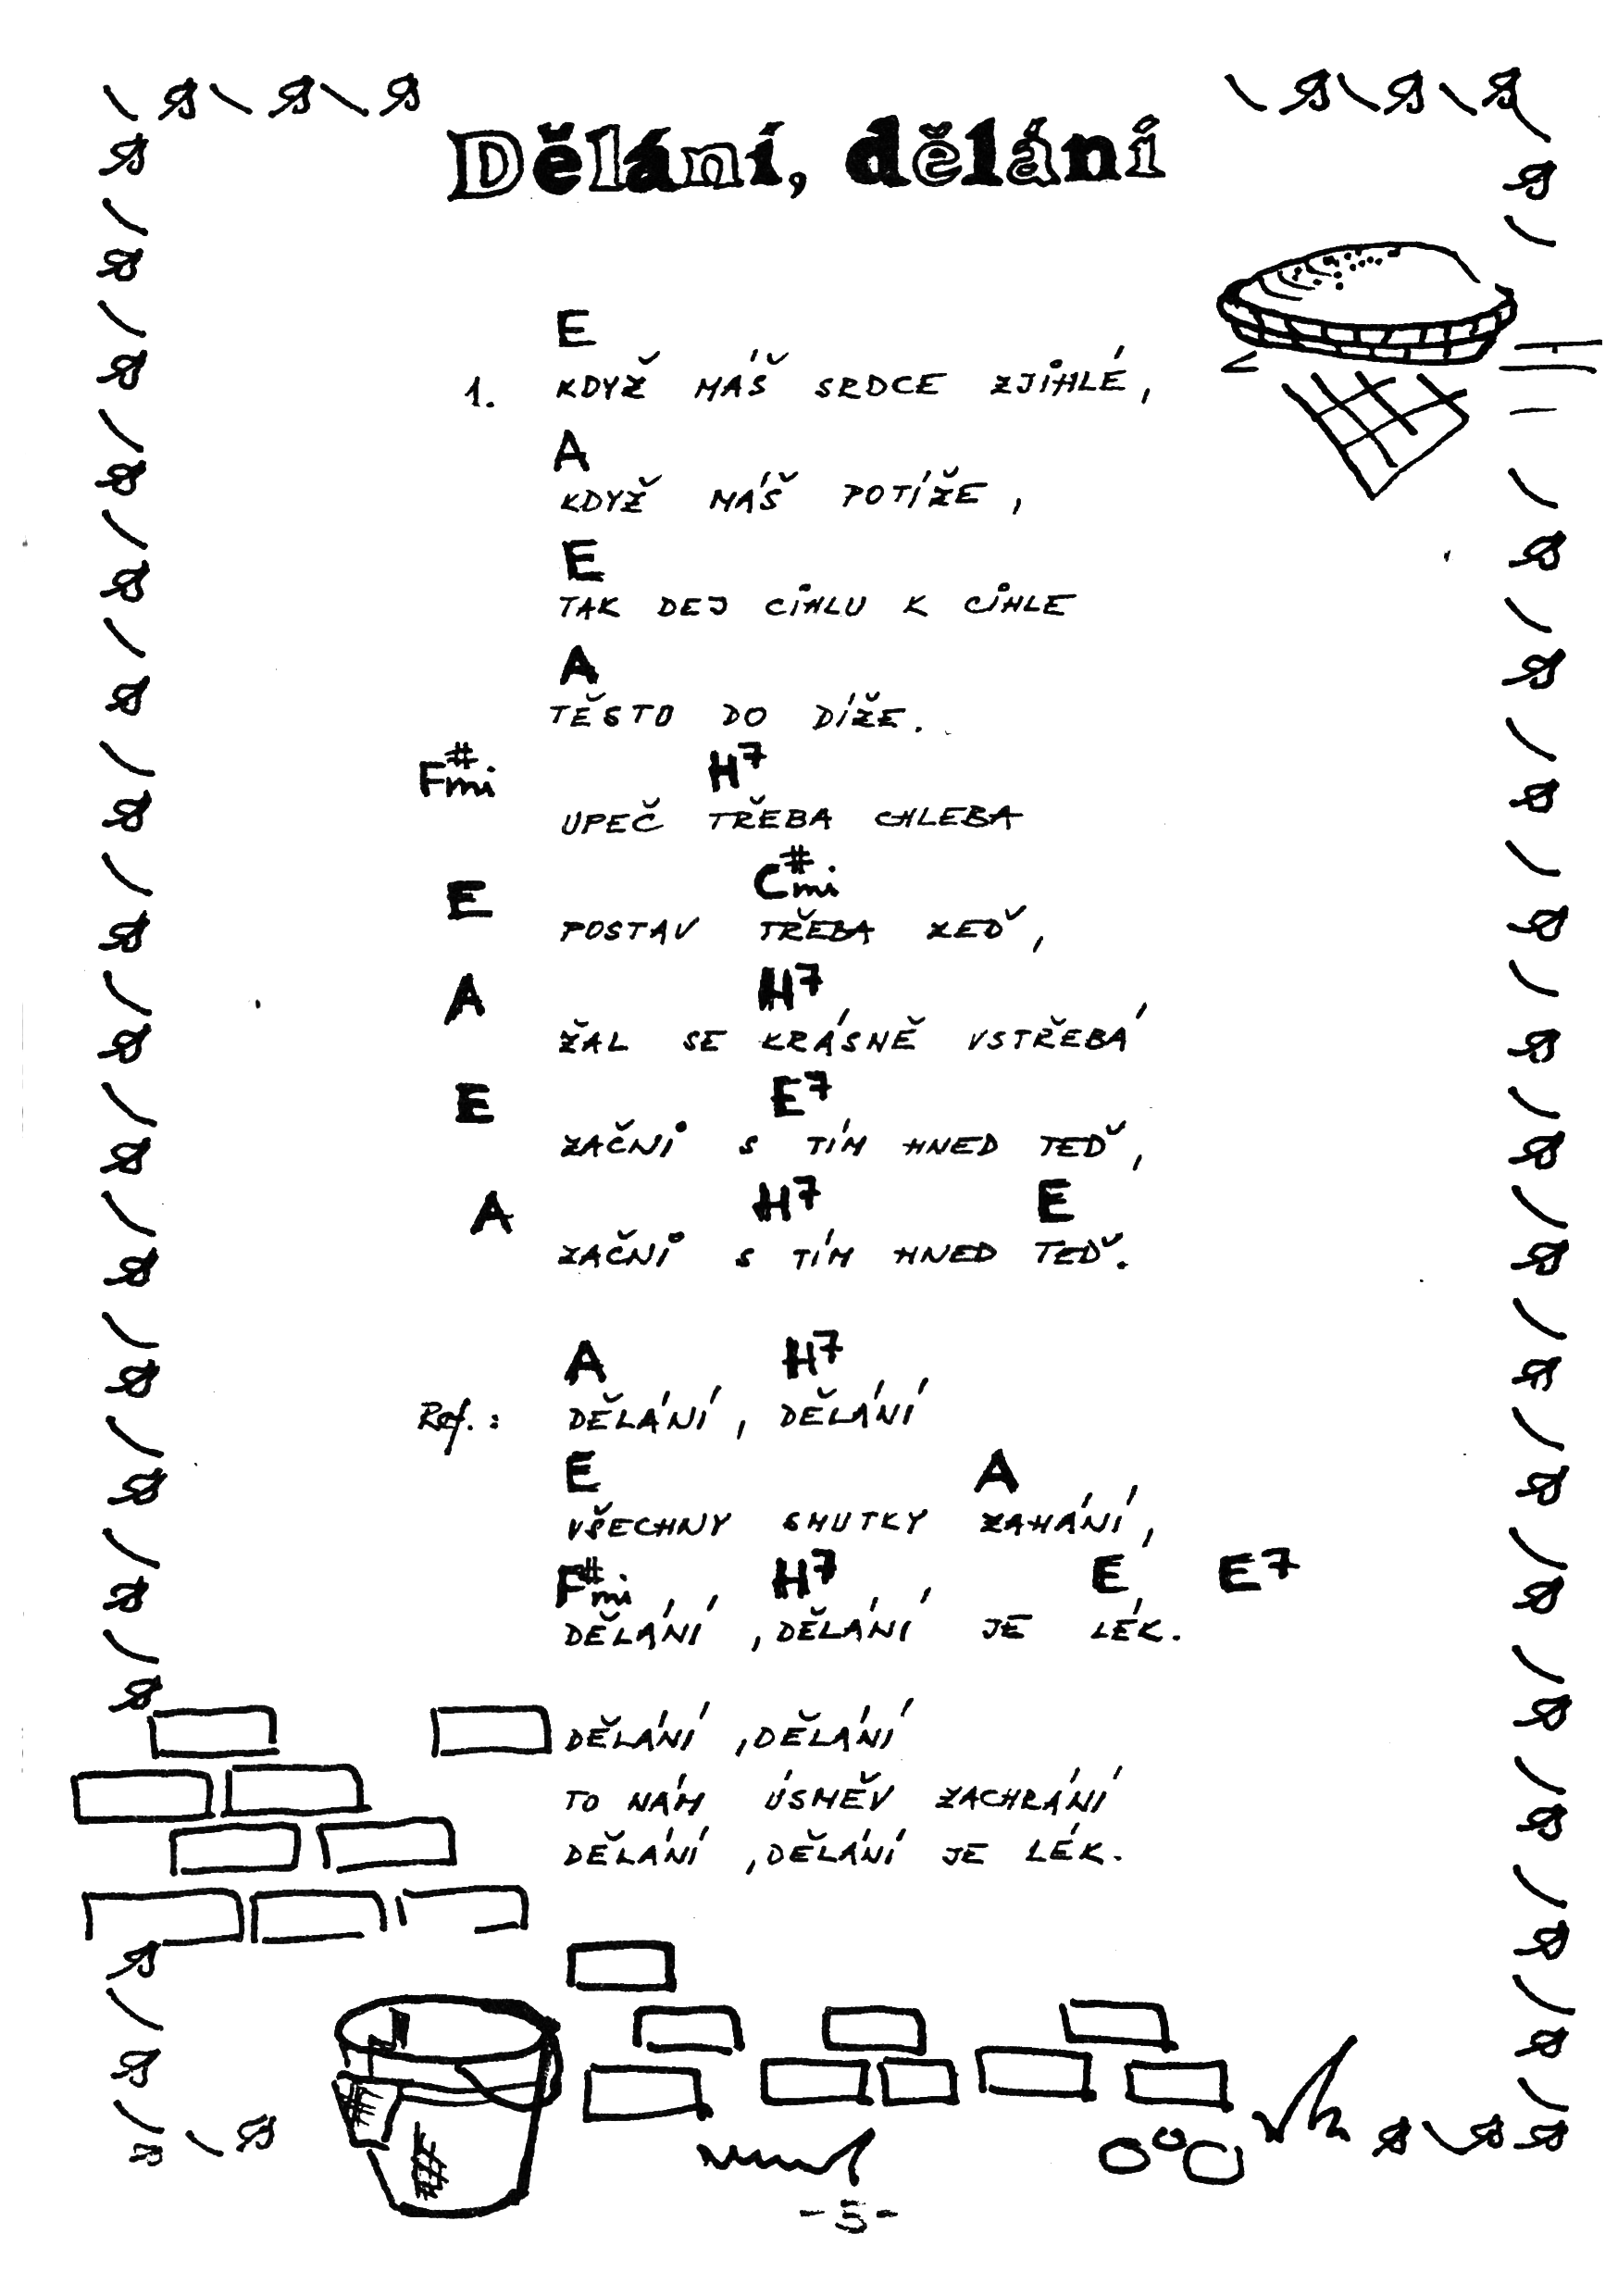 Dělání, dělání
E
1. KDYŽ MÁŠ SRDCE ZJIHLÉ,
A
KDYŽ MÁŠ POTÍŽE,
E
TAK DEJ CIHLU K CIHLE
A
TĚSTO DO DÍŽE.
F#mi H7
UPEČ TŘEBA CHLEBA
E C#mi
POSTAV TŘEBA ZEĎ,
A H7
ŽAL SE KRÁSNĚ VSTŘEBÁ
E E7
ZAČNI S TÍM HNED TEĎ,
A H7 E
ZAČNI S TÍM HNED TEĎ.
A H7
Ref.: DĚLÁNÍ, DĚLÁNÍ
E A
VŠECHNY SMUTKY ZAHÁNÍ,
F#mi H7 E E7
DĚLÁNÍ, DĚLÁNÍ JE LÉK.
DĚLÁNÍ, DĚLÁNÍ
TO NÁM ÚSMĚV ZACHRÁNÍ
DĚLÁNÍ, DĚLÁNÍ JE LÉK.
-5-